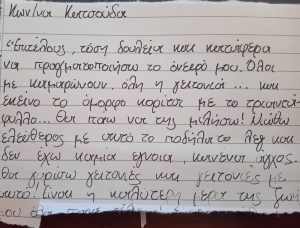 Κων/να Κατσούδα
"Επιτέλους, τόση δουλεία και κατάφερα
να πραγματοποιήσω το όνειρό μου. Όλοι
με καμαρώνουν, όλη η γειτονιά ... και
εκείνο το όμορφο κορίτσι με το τριαντά-
φυλλο... Θα πάω να της μιλήσω! Νιώθω
ελεύθερος με αυτό το ποδήλατο λες και
δεν έχω καμία έγνοια, κανένα άγχος.
Θα γυρίσω γειτονιές και γειτονιές με
αυτό! Είναι η καλύτερη μέρα της ζωή
μου όλα